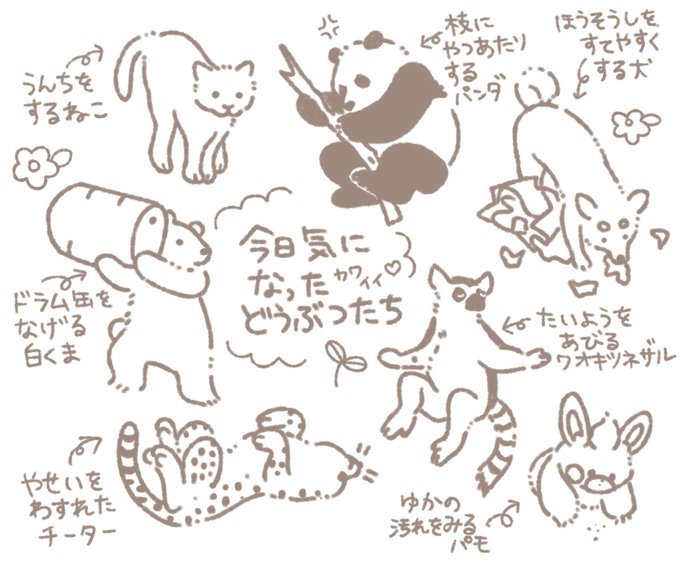 うんちを
するねこ
枝に
やつあたり
する
パンダ
ほうそうしを
すてやすく
する犬
ドラム缶を
なげる
白くま
今日気に
なった
カワイイ♡
どうぶつたち
たいようを
あびる
ワオキツネザル
やせいを
わすれた
チーター
ゆかの
汚れをみる
パモ